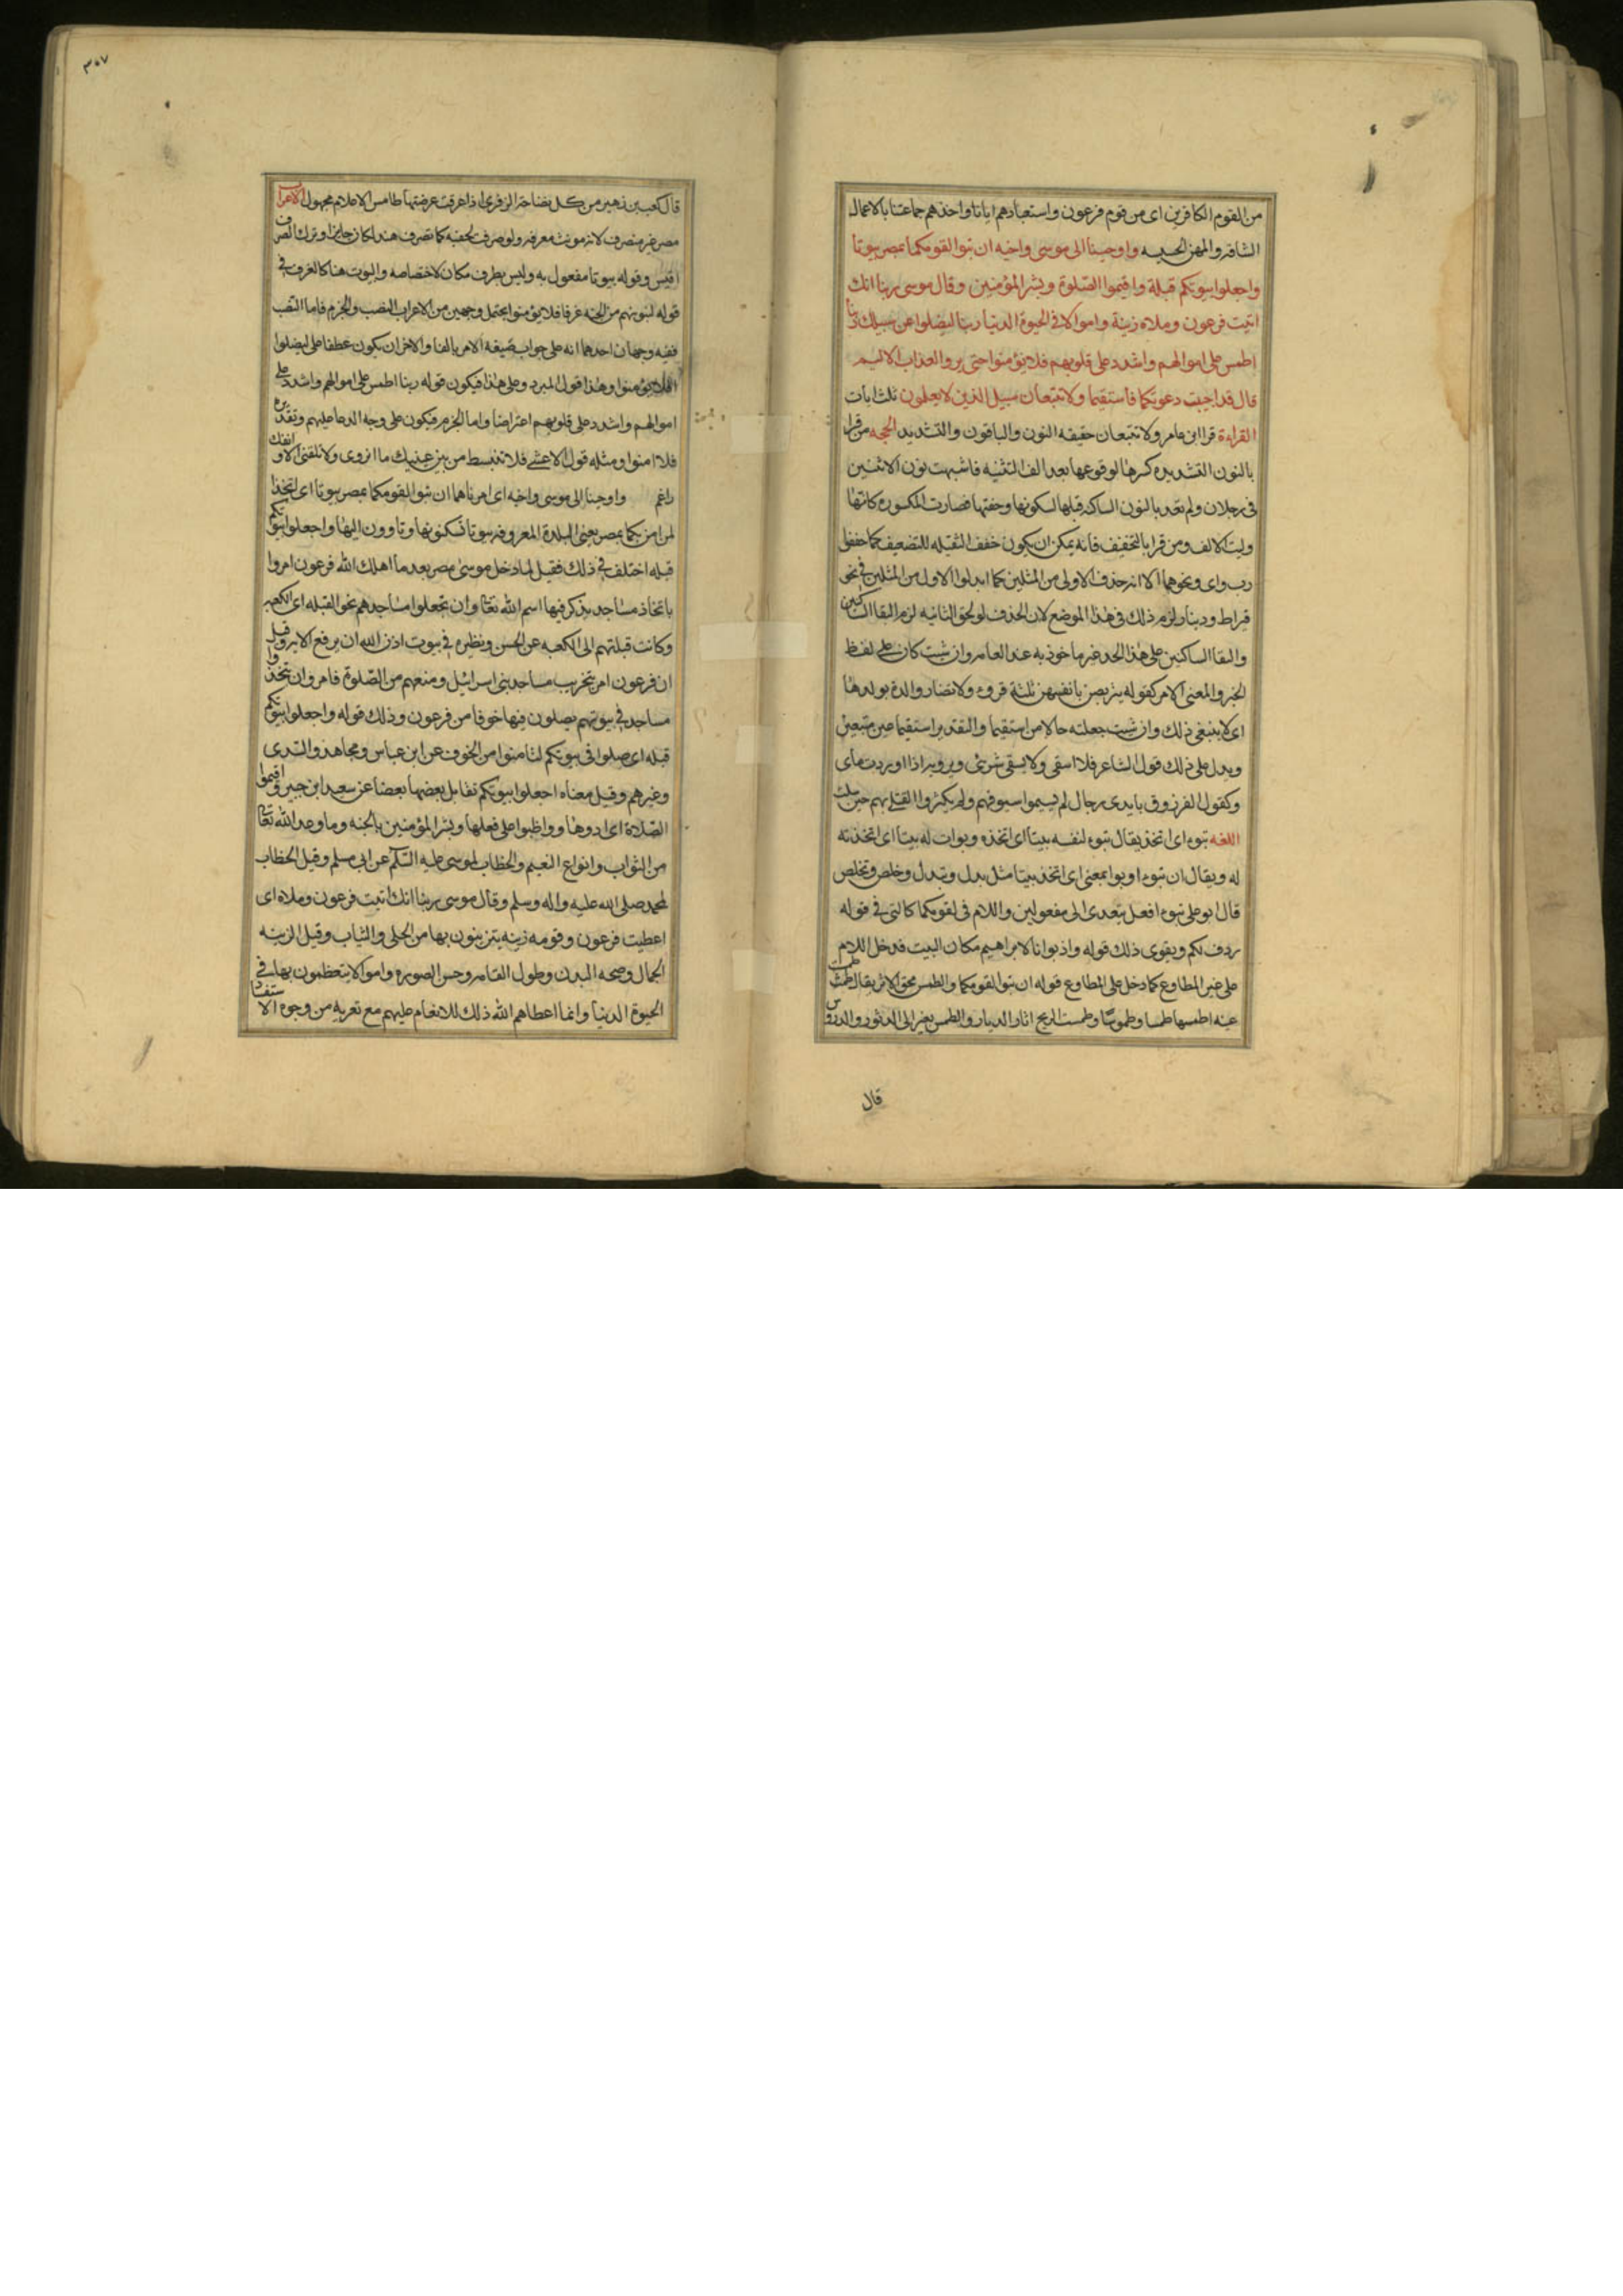 من القوم الكافرين اى من قوم فرعون واستعبادهم ايانا واخذهم جماعتنا بالاعمال
الشاقه والمهن الخسيسه واوحينا الى موسى واخيه ان تبوا لقومكما بمصر بيوتا
واجعلوا بيوتكم قبلة واقيموا الصلوة وبشر المؤمنين وقال موسى ربنا انك
اتيت فرعون وملاه زينة واموالا فى الحيوة الدنيا ربنا ليضلوا عن سبيلك ربنا
اطمس على اموالهم واشدد على قلوبهم فلا يؤمنوا حتى يروا العذاب الاليم
قال قد اجيبت دعوتكما فاستقيما ولا تتبعان سبيل الذين لا يعلمون ثلث ايات
القراءة قرا ابن عامر ولا تتبعان خفيفه النون والباقون والتشديد الحجه من قرا
بالنون الشديده كسرها لوقوعها بعد الف التثنيه فاشبهت نون الاثنين
فى رجلان ولم تعد بالنون الساكنه قبلها لسكونها وخفتها فصارت المكسوره كانها
وليت الالف ومن قرا بالتخفيف فانه يمكن ان يكون خفف الثقيله للتضعيف كما خففوا
رب وان ونحوهما الا انه حذف الاولى من المثلين كما ابدلوا الاول من المثلين فى نحو
قيراط ودينار لزم ذلك فى هذا الموضع لان الحذف لو لحق الثانيه لزم التقا الساكنين
والتقا الساكنين على هذا الحد غير ماخوذ به عند العامه وان شئت كان على لفظ
الخبر والمعنى الامر كقوله يتربصن بانفسهن ثلثة قروء ولا تضار والدة بولدها
اى لا ينبغى ذلك وان شئت جعلته حالا من استقيما والتقدير استقيما غير متبعين
ويدل على ذلك قول الشاعر فلا اسقى ولا يسقى شريبى ويرويه اذا اوردت ماى
وكقول الفرزدق بايدى رجال لم يشيموا سيوفهم ولم يكثروا القتلى بهم حين سلت
اللغه تبوء اى اتخذ يقال تبوء لنفسه بيتا اى اتخذه وبوات له بيتا اى اتخذته
له ويقال ان تبوءا وبوا بمعنى اى اتخذ بيتا مثل بدل وتبدل وخلص وتخلص
قال ابو على تبوء افعل يتعدى الى مفعولين واللام فى لقومكما كالتى فى قوله
ردف لكم ويقوى ذلك قوله واذ بوانا لابراهيم مكان البيت فدخل اللام
على غير المطاوع كما دخل على المطاوع قوله ان تبوا لقومكما والطمس محو الاثر يقال طمست
عينه اطمسها طمسا وطموسا وطمست الريح اثار الديار والطمس تغير الى الدثور والدروس
قال
٣٠٧
قال كعب بن زهير من كل نضاخة الذفرى اذا عرقت عرضتها طامس الاعلام مجهول الاعراب
مصر غير منصرف لانه مونث معرفه ولو صرف لخفته كما تصرف هند لكان جايزا وترك الصرف
اقيس وقوله بيوتا مفعول به وليس بظرف مكان لاختصاصه والبيوت هنا كالغرف فى
قوله لنبوئنهم من الجنة غرفا فلا يؤمنوا يحتمل وجهين من الاعراب النصب والجزم فاما النصب
ففيه وجهان احدهما انه على جواب صيغه الامر بالفا والاخر ان يكون عطفا على ليضلوا
فلا يؤمنوا وهذا قول المبرد وعلى هذا فيكون قوله ربنا اطمس على اموالهم واشدد على
اموالهم واشدد على قلوبهم اعتراضا واما الجزم فيكون على وجه الدعا عليهم وتقديره
فلا امنوا ومثله قول الاعشى فلا تنبسط من بين عينيك ما انزوى ولا تلقنى الا وانفك
راغم واوحينا الى موسى واخيه اى امرناهما ان تبوا لقومكما بمصر بيوتا اى اتخذا
لمن امن بكما بمصر يعنى البلدة المعروفه بيوتا تسكنونها وتاوون اليها واجعلوا بيوتكم
قبله اختلف فى ذلك فقيل لما دخل موسى مصر بعد ما اهلك الله فرعون امروا
باتخاذ مساجد يذكر فيها اسم الله تعالى وان تجعلوا مساجدهم نحو القبله اى الكعبه
وكانت قبلتهم الى الكعبه عن الحسن ونظيره فى بيوت اذن الله ان يرفع الايه وقيل
ان فرعون امر بتخريب مساجد بنى اسرائيل ومنعهم من الصلوة فامروا ان يتخذوا
مساجد فى بيوتهم يصلون فيها خوفا من فرعون وذلك قوله واجعلوا بيوتكم
قبله اى صلوا فى بيوتكم لتامنوا من الخوف عن ابن عباس ومجاهد والسدى
وغيرهم وقيل معناه اجعلوا بيوتكم تقابل بعضها بعضا عن سعيد ابن جبير واقيموا
الصلاة اى ادوها وواظبوا على فعلها وبشر المؤمنين بالجنه وما وعد الله تعالى
من الثواب وانواع النعيم والخطاب لموسى عليه السلم عن ابى مسلم وقيل الخطاب
لمحمد صلى الله عليه واله وسلم وقال موسى ربنا انك اتيت فرعون وملاه اى
اعطيت فرعون وقومه زينه يتزينون بها من الحلى والثياب وقيل الزينه
الجمال وصحه البدن وطول القامه وحسن الصوره واموالا يتعظمون بها فى
الحيوة الدنيا وانما اعطاهم الله ذلك للانعام عليهم مع تعريه من وجوه الاستفساد